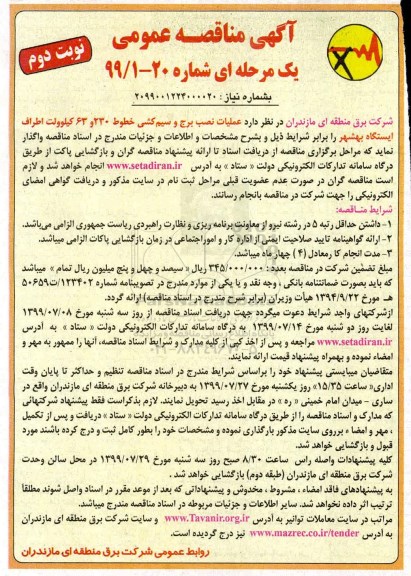 آگهی مناقصه عمومی
یک مرحله ای شماره ۲۰-۹۹/۱
نوبت دوم
بشماره نیاز : ۲۰۹۹۰۰۱۲۲۳۰۰۰۰۲۰
شرکت برق منطقه ای مازندران در نظر دارد عملیات نصب برج و سیم کشی خطوط ۲۳۰و ۶۳ کیلوولت اطراف
ایستگاه بهشهر را برابر شرایط ذیل و بشرح مشخصات و اطلاعات و جزئیات مندرج در اسناد مناقصه واگذار
نماید که مراحل برگزاری مناقصه از دریافت اسناد تا ارائه پیشنهاد مناقصه گران و بازگشایی پاکت از طریق
درگاه سامانه تدارکات الکترونیکی دولت « ستاد » به آدرس www.setadiran.ir انجام خواهد شد و لازم
است مناقصه گران در صورت عدم عضویت قبلی مراحل ثبت نام در سایت مذکور و دریافت گواهی امضای
الکترونیکی را جهت شرکت در مناقصه بانجام رسانند.
شرایط مناقصه:
۱- داشتن حداقل رتبه ۵ در رشته نیرو از معاونت برنامه ریزی و نظارت راهبردی ریاست جمهوری الزامی می‌باشد.
۲- ارائه گواهینامه تایید صلاحیت ایمنی از اداره کار و امور اجتماعی در زمان بازگشایی پاکات الزامی میباشد.
۳- مدت انجام کا رمعادل (۴ ) چهار ماه میباشد.
مبلغ تضمین شرکت در مناقصه بعدد : ۳۴۵/۰۰۰/۰۰۰ ریال « سیصد و چهل و پنج میلیون ریال تمام » میباشد
که باید بصورت ضمانتنامه بانکی ، وجه نقد و یا یکی از موارد مندرج در تصویبنامه شماره ۱۲۳۴۰۲/ت۵۰۶۵۹
هـ مورخ ۱۳۹۴/۹/۲۲ هیأت وزیران (برابر شرح مندرج در اسناد مناقصه) ارائه گردد.
ازشرکتهای واجد شرایط دعوت میگردد جهت دریافت اسناد مناقصه از روز سه شنبه مورخ ۱۳۹۹/۰۷/۰۸
لغایت روز دو شنبه مورخ ۱۳۹۹/۰۷/۱۴ به درگاه سامانه تدارکات الکترونیکی دولت « ستاد » به آدرس
www.setadiran.ir مراجعه و پس از اخذ کپی از کلیه مدارک و شرایط اسناد مناقصه، آنها را ممهور به مهر و
امضاء نموده و بهمراه پیشنهاد قیمت ارائه نمایند.
متقاضیان میبایستی پیشنهاد خود را براساس شرایط مندرج در اسناد مناقصه تنظیم و حداکثر تا پایان وقت
اداری« ساعت ۱۵/۳۵» روز یکشنبه مورخ ۱۳۹۹/۰۷/۲۷ به دبیرخانه شرکت برق منطقه ای مازندران واقع در
ساری - میدان امام خمینی « ره » در مقابل اخذ رسید تحویل نمایند. لازم بذکراست فقط پیشنهاد شرکتهائی
که مدارک و اسناد مناقصه را از طریق درگاه سامانه تدارکات الکترونیکی دولت « ستاد » دریافت و پس از تکمیل
، مهر و امضاء برروی سایت مذکور بارگذاری نموده و مشخصات خود را بطور کامل ثبت و درج کرده باشند مورد
قبول و بازگشایی خواهد شد.
کلیه پیشنهادات واصله راس ساعت ۸/۳۰ صبح روز سه شنبه مورخ ۱۳۹۹/۰۷/۲۹ در محل سالن وحدت
شرکت برق منطقه ای مازندران (طبقه دوم) بازگشایی خواهد شد .
به پیشنهادهای فاقد امضاء ، مشروط ، مخدوش و پیشنهاداتی که بعد از موعد مقرر در اسناد واصل شوند مطلقاً
ترتیب اثر داده نخواهد شد. سایر اطلاعات و جزئیات مربوطه در اسناد مناقصه مندرج میباشد.
مراتب در سایت معاملات توانیر به آدرس www.Tavanir.org.ir و سایت شرکت برق منطقه ای مازندران
به آدرس www.mazrec.co.ir/tender نیز درج گردیده است.
روابط عمومی شرکت برق منطقه ای مازندران